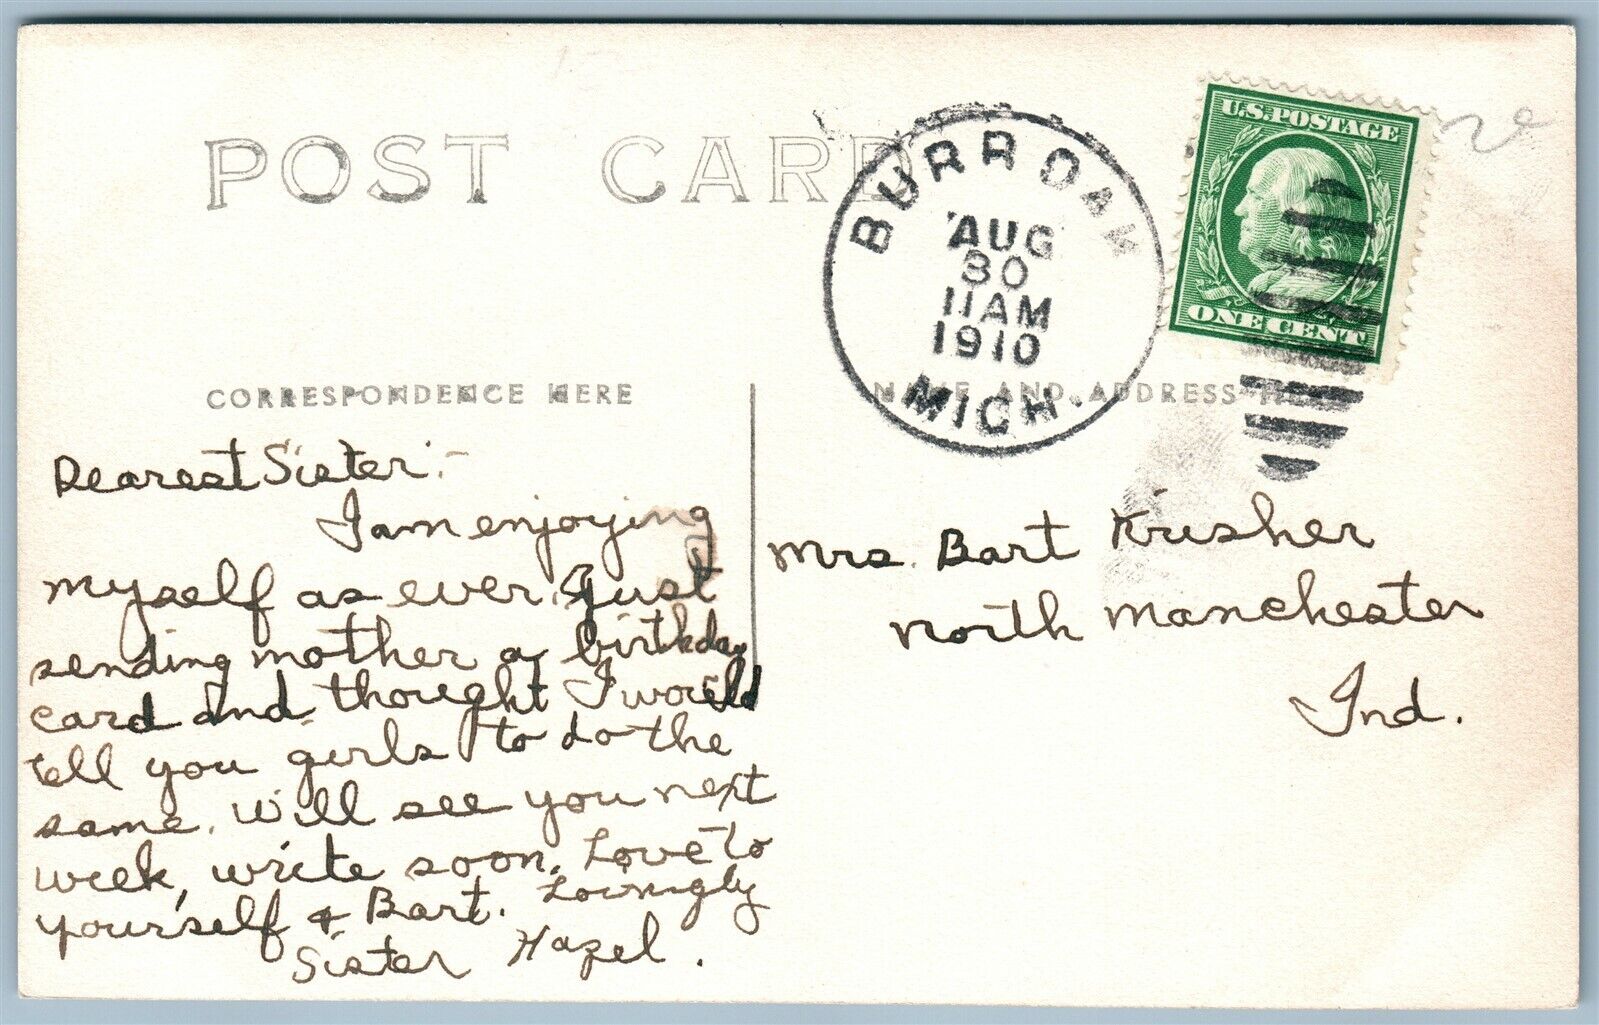 POST CARD
BURR OAK
AUG
30
11 AM
1910
MICH.
U.S. POSTAGE
ONE CENT
CORRESPONDENCE HERE
NAME AND ADDRESS HERE
Dearest Sister:-
I am enjoying
myself as ever. Just
sending mother a birthday
card and thought I would
tell you girls to do the
same. Will see you next
week, write soon. Love to
yourself & Bart. Lovingly
Sister Hazel.
Mrs. Bart Krisher
North Manchester
Ind.